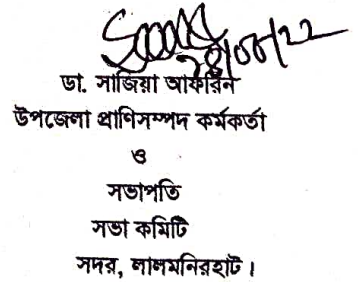 ২৪/০৮/২২
ডা. সাজিয়া আফরিন
উপজেলা প্রাণিসম্পদ কর্মকর্তা
ও
সভাপতি
সভা কমিটি
সদর, লালমনিরহাট।